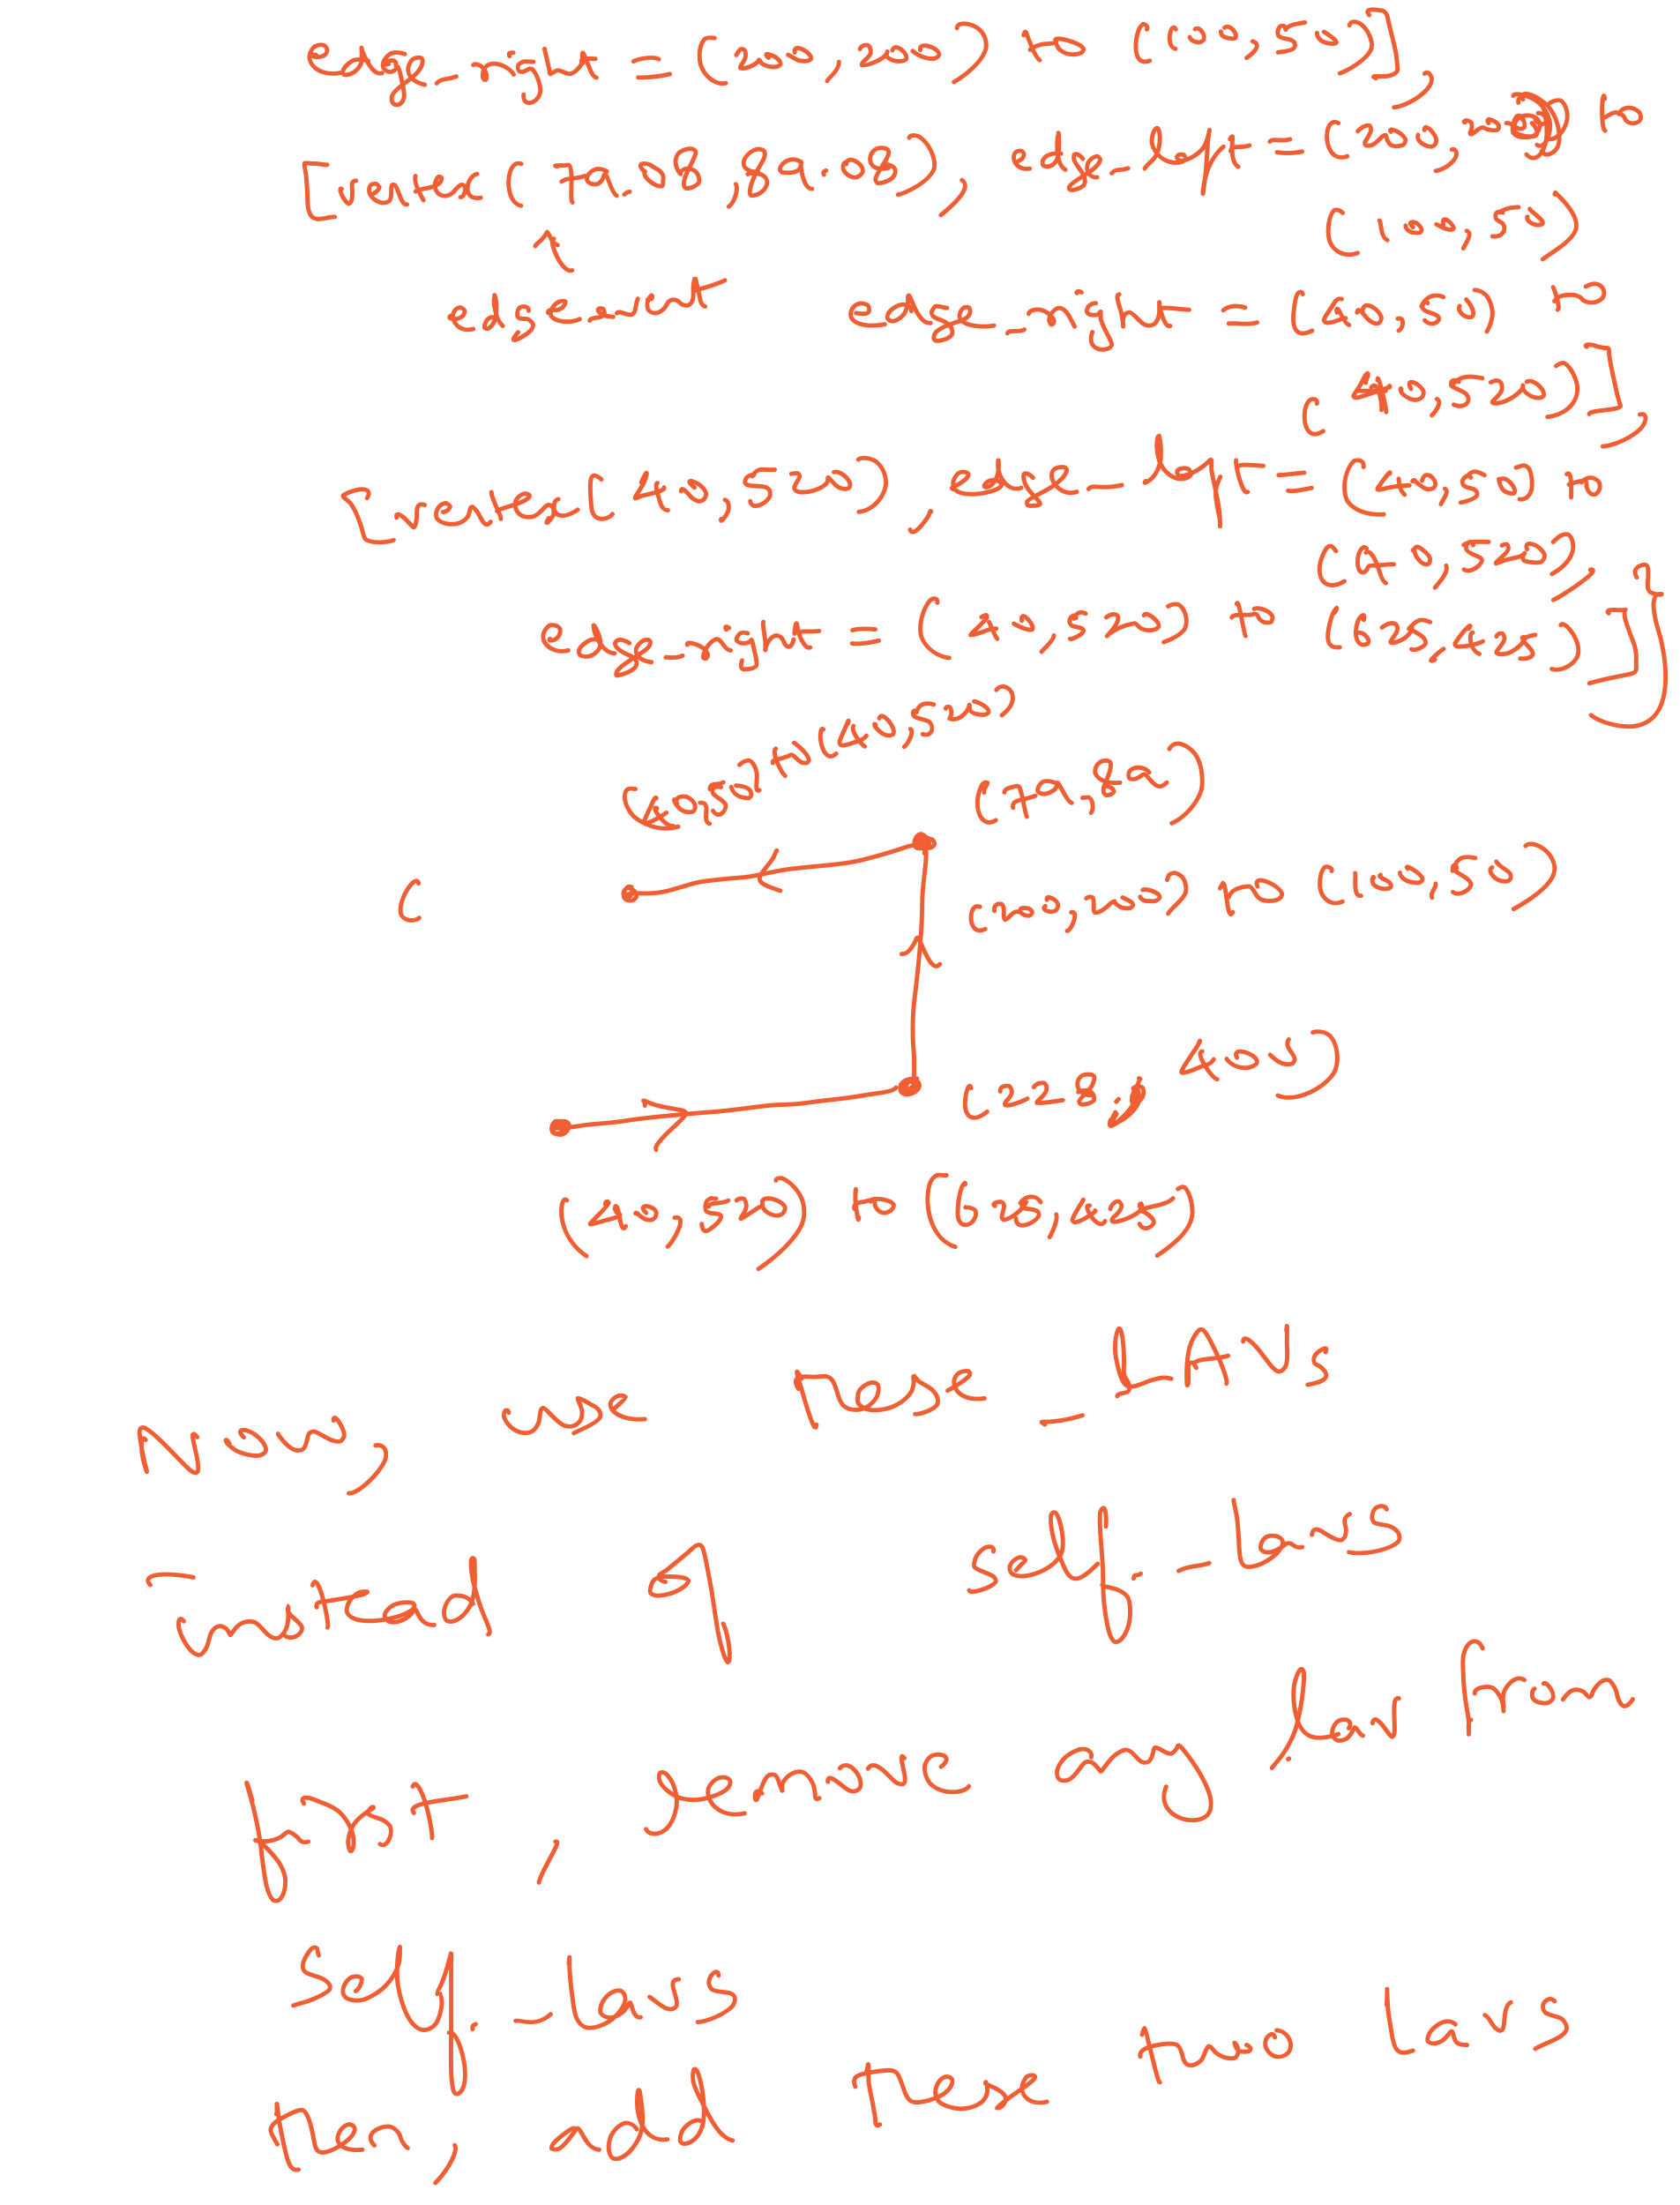 edge_right = (200,200) to (100,50)],
[vertex(79.08,80.08), edge_left = (200,200) to
(100,50)
adjacent edge_right = (40,50) to
(40,520)],
[vertex(40,550), edge_left = (40,50) to
(40,520),
edge_right = (40,520) to (625,425)]}
(40,50) to (40,520)
(79,80)
(
(200,200) to (100,50)
(228, 400)
(40,520) to (625,425)
Now, use these _LAVs
instead of self._lavs
first, remove any lav from
self._lavs
then, add these two lavs